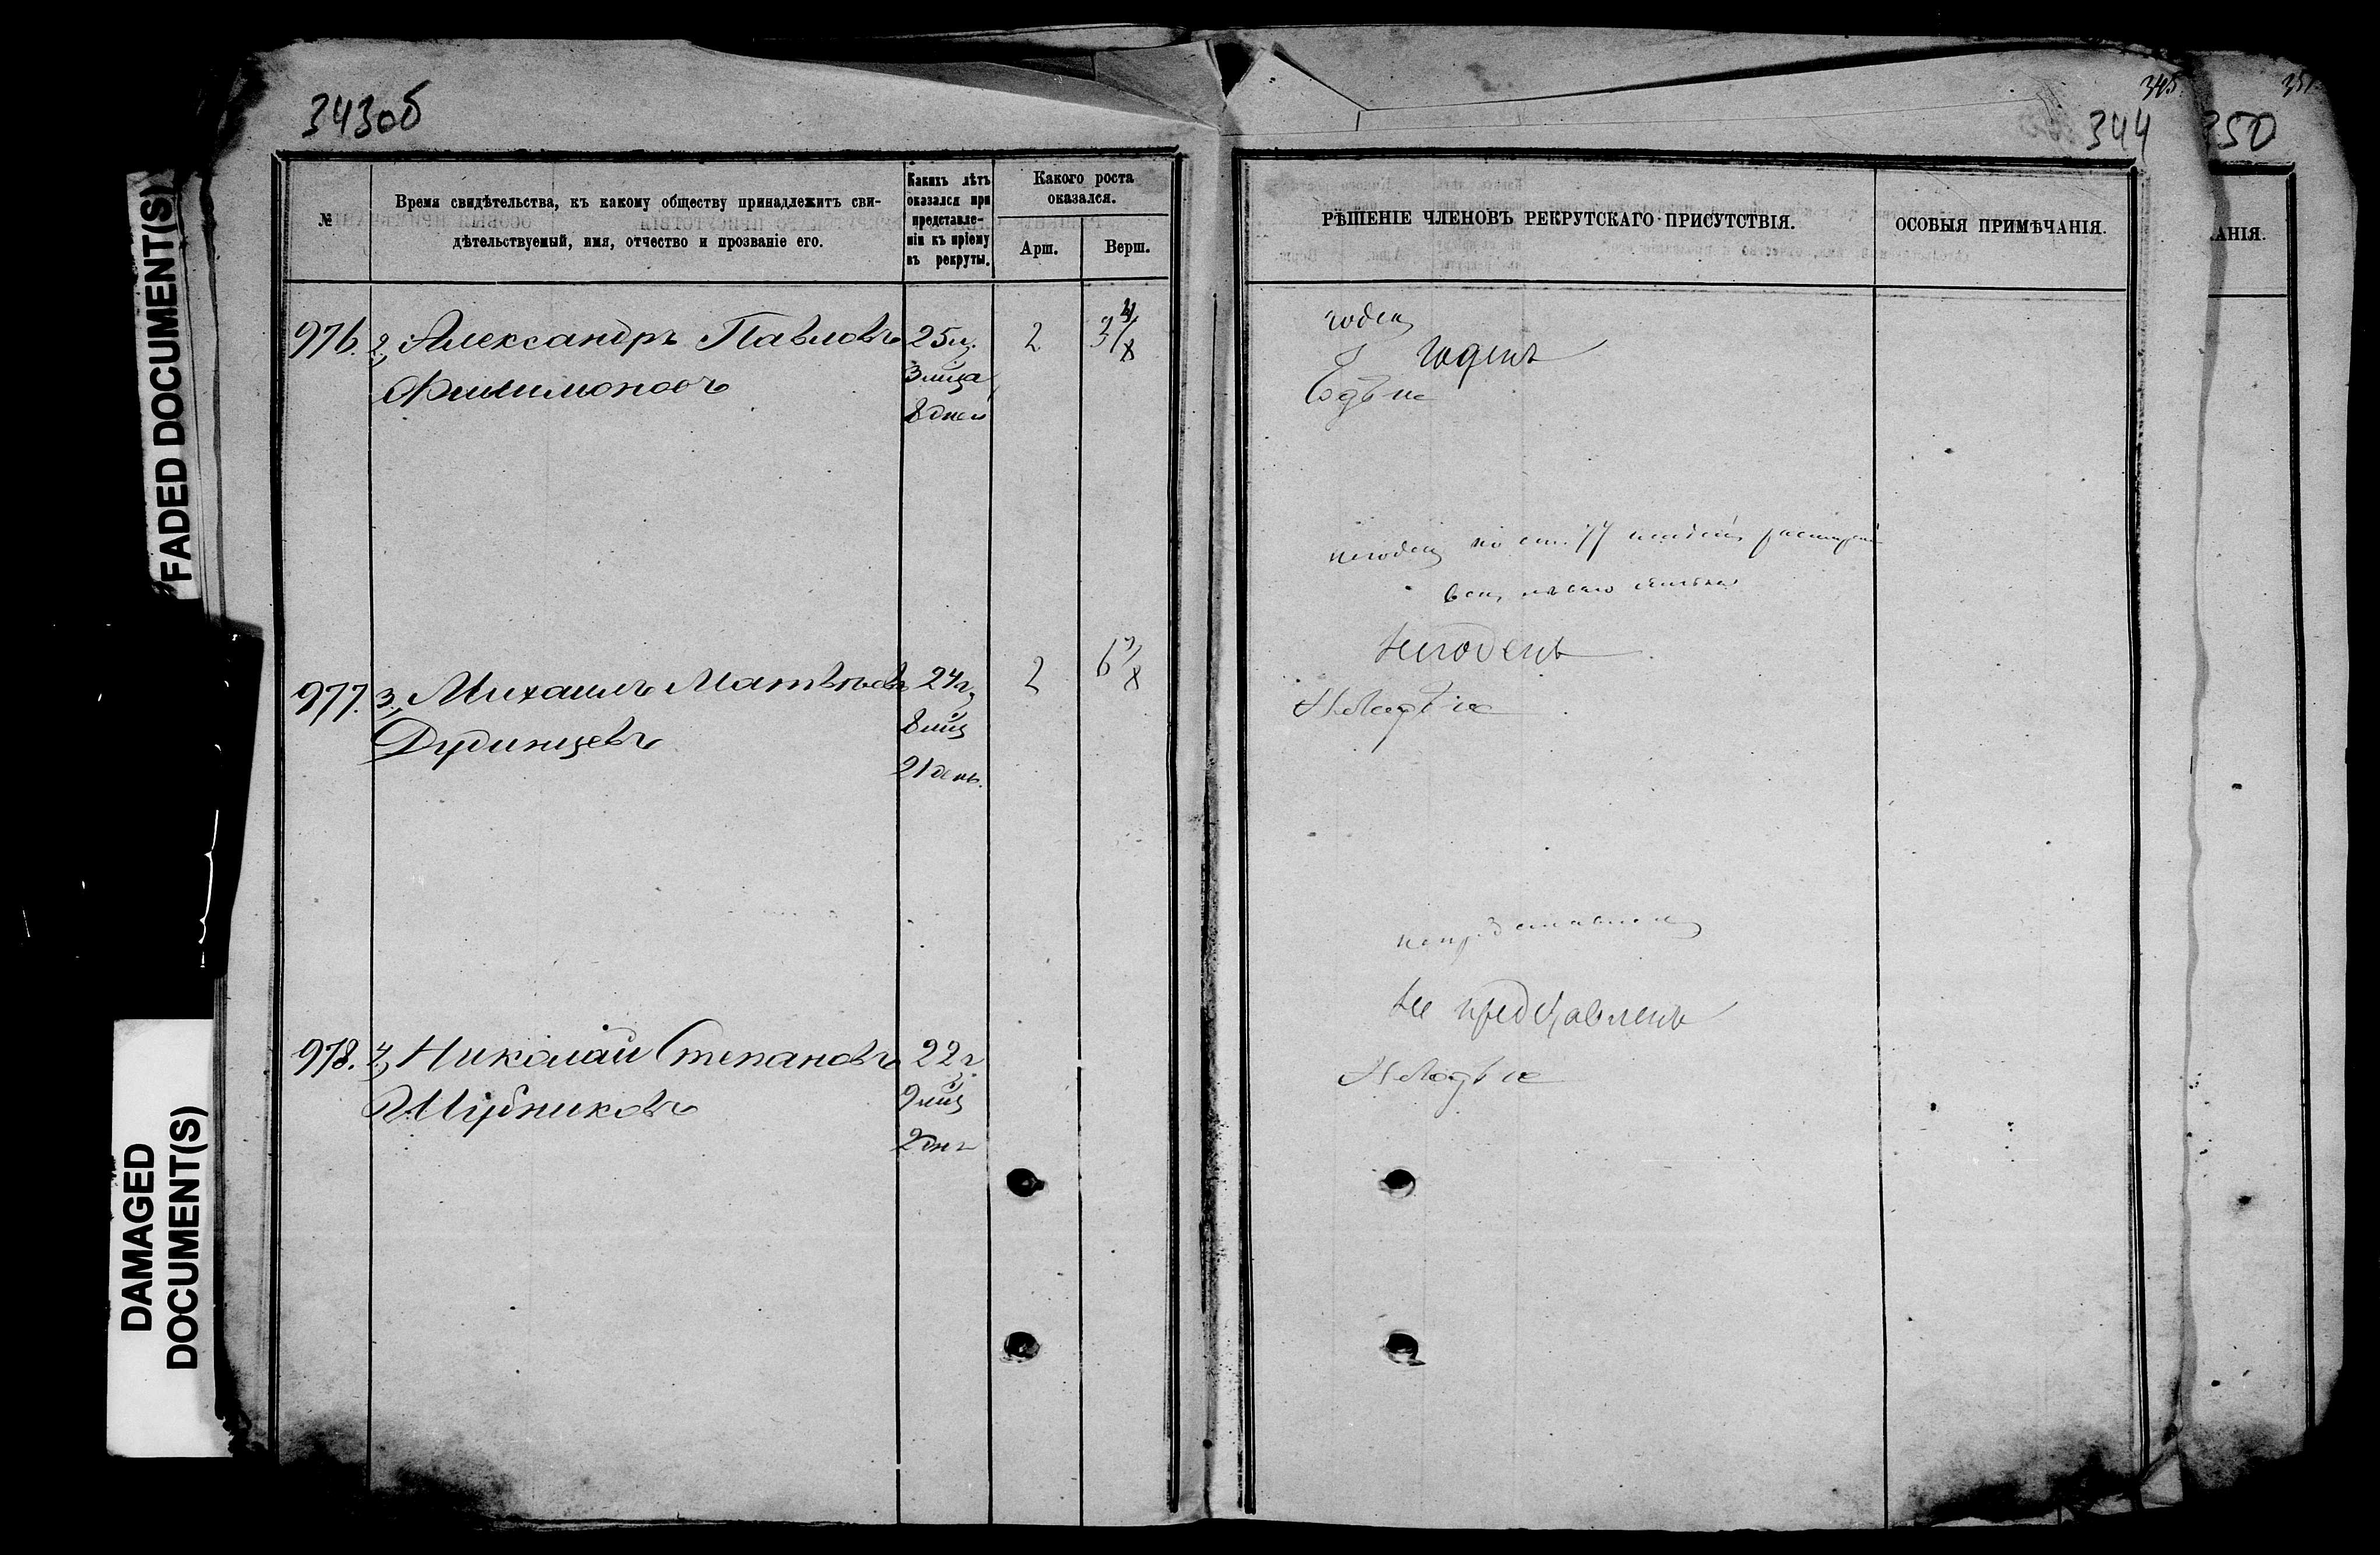 343об
344
345
350
FADED DOCUMENT(S)
DAMAGED
DOCUMENT(S)
№
Время свидѣтельства, къ какому обществу принадлежитъ сви-
дѣтельствуемый, имя, отчество и прозваніе его.
Какихъ лѣтъ
оказался при
представле-
ніи къ пріему
въ рекруты.
Какого роста
оказался.
Арш.
Верш.
РѢШЕНІЕ ЧЛЕНОВЪ РЕКРУТСКАГО ПРИСУТСТВІЯ.
ОСОБЫЯ ПРИМѢЧАНІЯ.
АНІЯ.
976. 2, Александръ Павловъ 25 2 3 4/8
Филимоновъ 3 мѣца
8 дней
годенъ
годенъ
977. 3, Михаилъ Матвѣевъ 24г. 2 6 7/8
Дудинцевъ 8 мѣц
21 день.
негоденъ по ст. 77
негоденъ
978. 4, Николай Степановъ 22г
Шубниковъ 9 мѣц
2 дня
непредставленъ
не представленъ